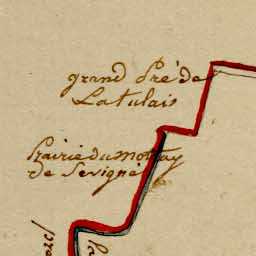 grand Pré de
Latulais
Prairie du mottay
de Sevigné